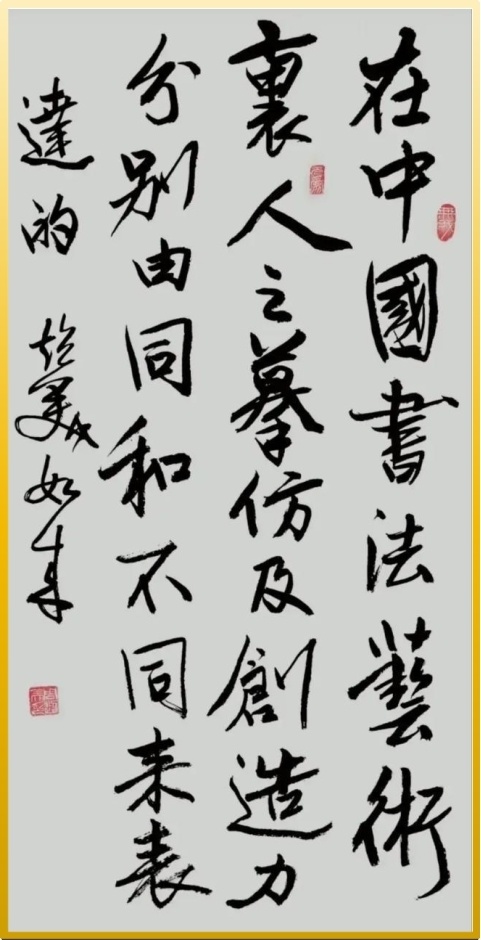 在中國書法藝術
裏人之摹仿及創造力
分别由同和不同来表
達的 如来